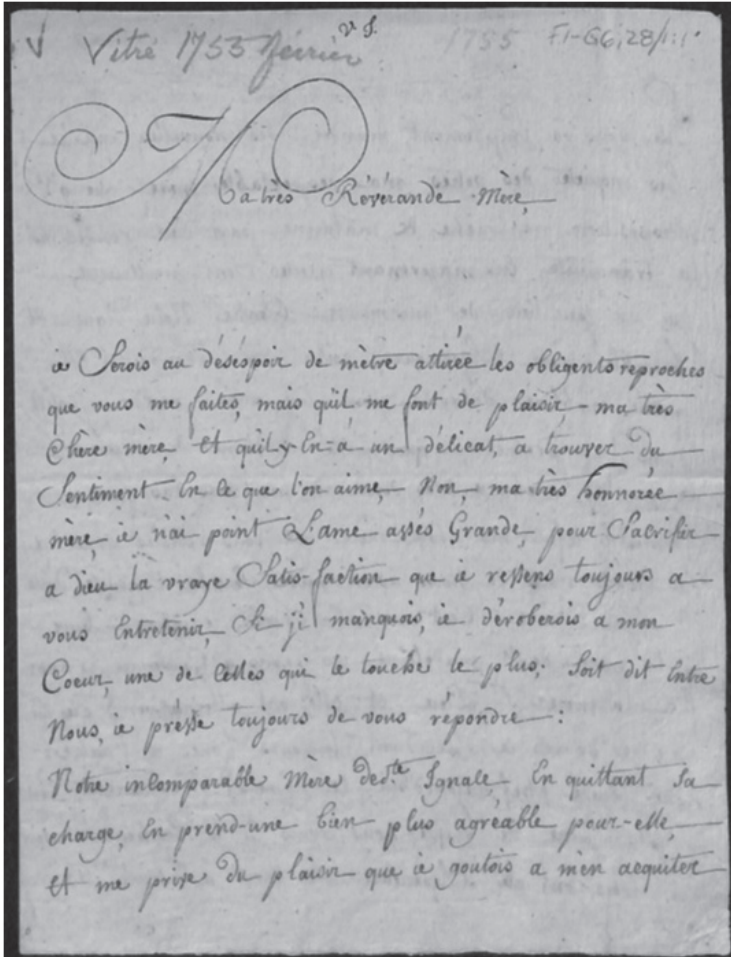 v. s.
Vitré 1753 février 1755 F1-G6,28/1:1
Ma très Révérande Mère,
ie Serois au désespoir de mètre attirée les obligents reproches
que vous me faites, mais qu'il me font de plaisir ma très
Chère mère, et qu'il-y-En-á un délicat, a trouver du
Sentiment En ce que l'on aime, Non, ma très honnorée
mère, ie n'ai point L'ame assés Grande, pour Sacrifir
a dieu la vraye Satis-faction que ie ressens toujours a
vous Entretenir, Si j'i manquois, ie déroberois a mon
Coeur, une de celles qui le touche le plus; Soit dit Entre
Nous, ie presse toujours de vous répondre:
Notre incomparable Mère de ste Ignace En quittant Sa
charge, En prend-une bien plus agréable pour-elle,
Et me prive du plaisir que ie goutois a m'en acquiter